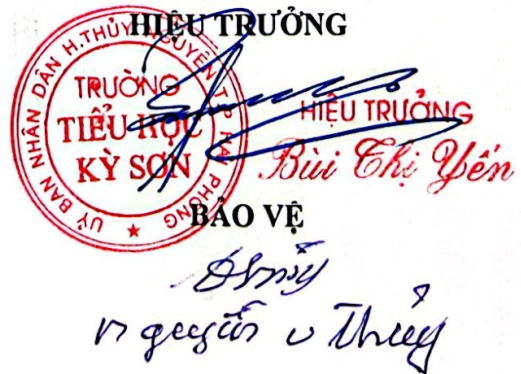 HIỆU TRƯỞNG
UỶ BAN NHÂN DÂN H.THỦY NGUYÊN T.P HẢI PHÒNG
TRƯỜNG
TIỂU HỌC
KỲ SƠN
HIỆU TRƯỞNG
Bùi Thị Yến
BẢO VỆ
Nguyễn v Thủy